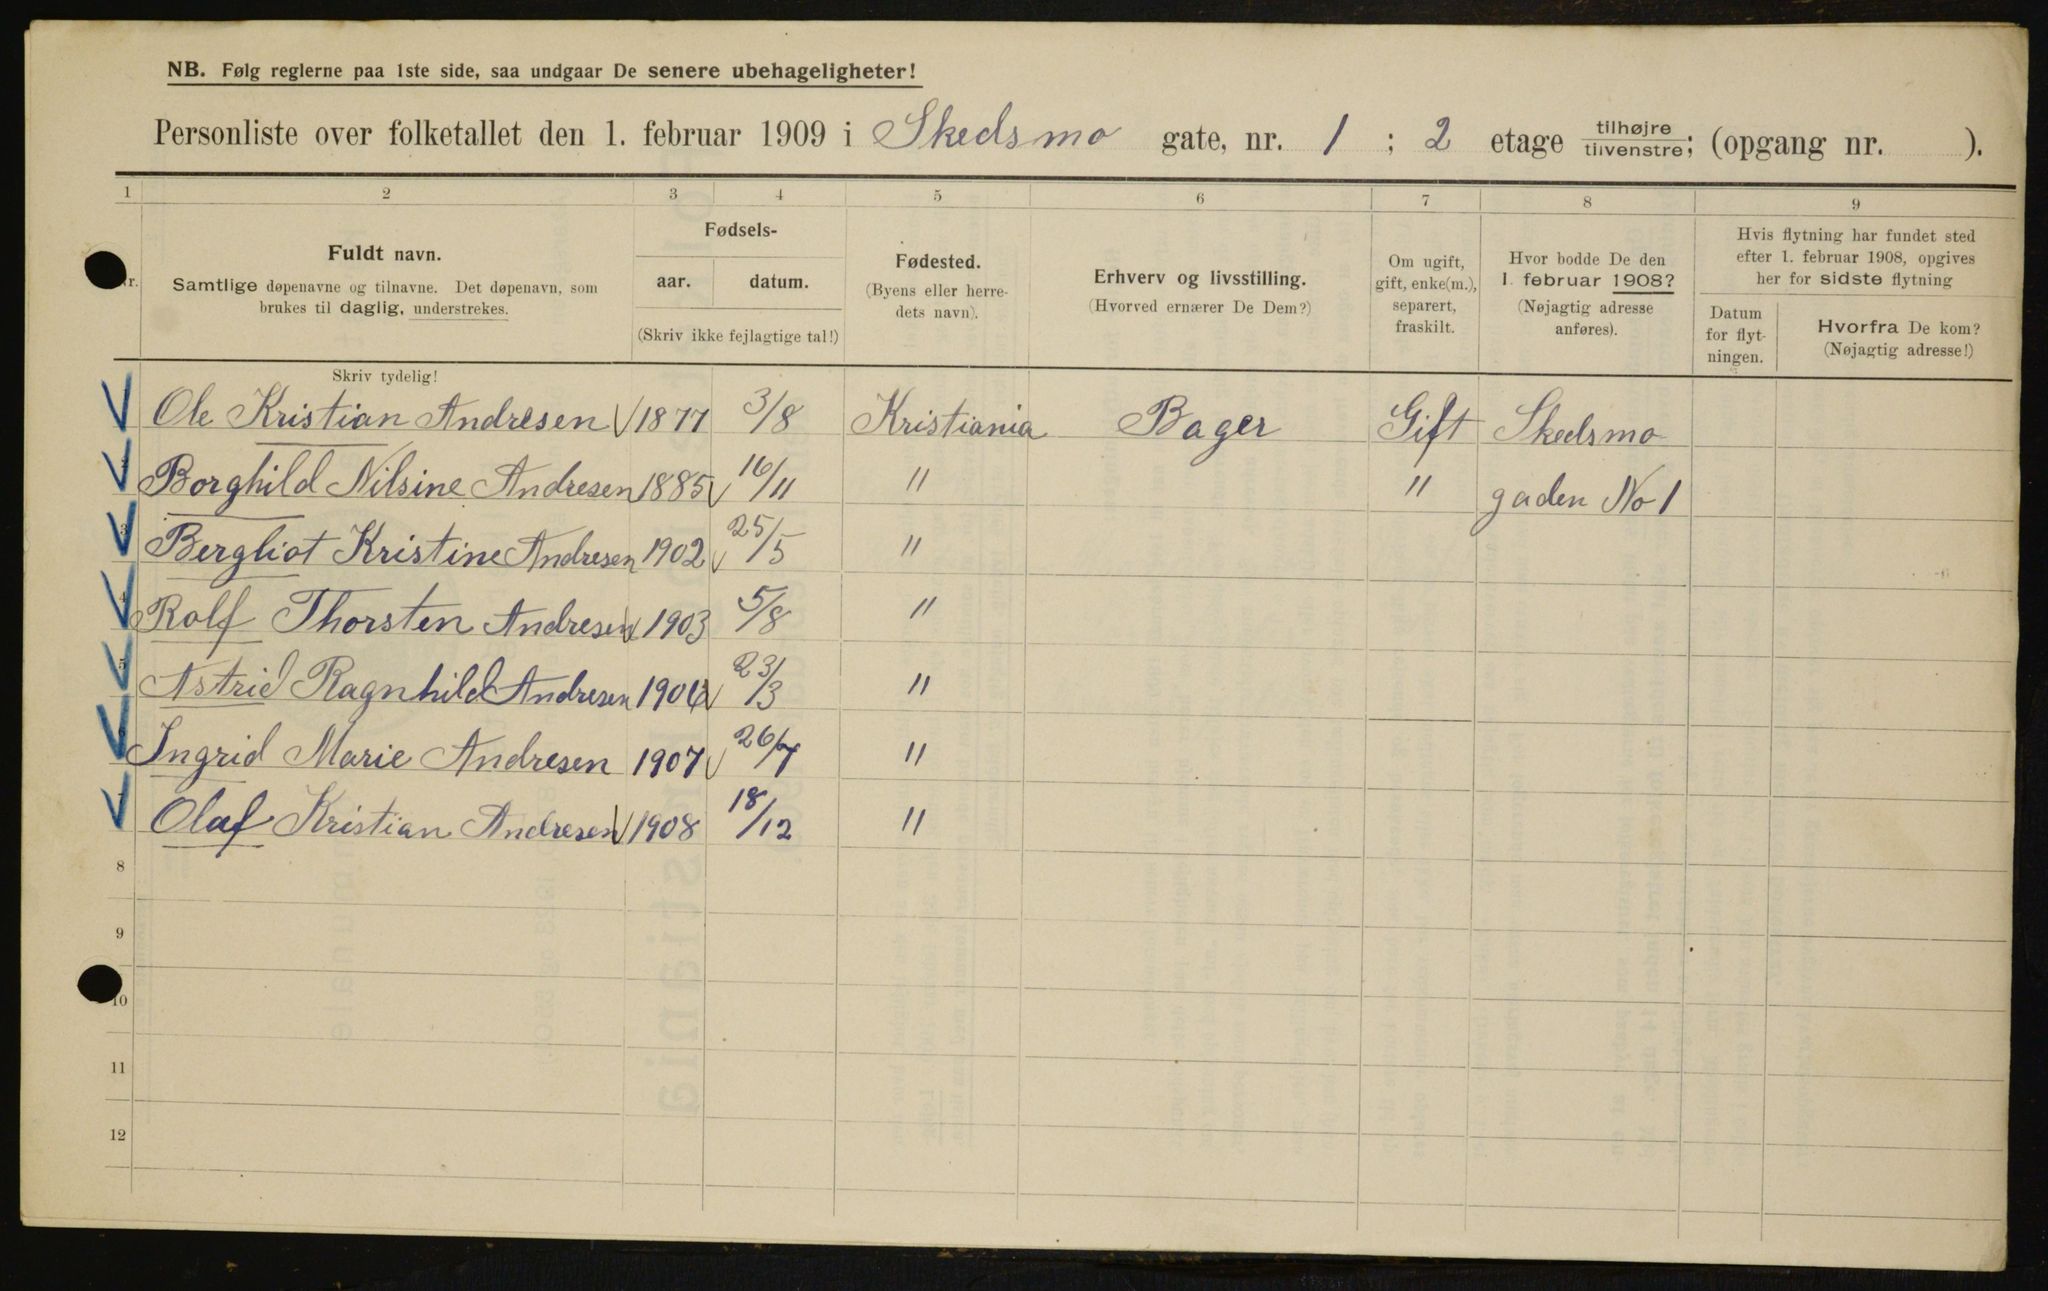 NB. Følg reglerne paa 1ste side, saa undgaar De senere ubehageligheter!
Personliste over folketallet den 1. februar 1909 i Skedsmo gate, nr. 1 ; 2 etage tilhøjre tilvenstre; (opgang nr. ).
1 2 3 4 5 6 7 8 9
Nr.
Fuldt navn.
Samtlige døpenavne og tilnavne. Det døpenavn, som
brukes til daglig, understrekes.
Fødsels-
aar. datum.
(Skriv ikke fejlagtige tal!)
Fødested.
(Byens eller herre-
dets navn).
Erhverv og livsstilling.
(Hvorved ernærer De Dem?)
Om ugift,
gift, enke(m.),
separert,
fraskilt.
Hvor bodde De den
1. februar 1908?
(Nøjagtig adresse
anføres).
Hvis flytning har fundet sted
efter 1. februar 1908, opgives
her for sidste flytning
Datum
for flyt-
ningen.
Hvorfra De kom?
(Nøjagtig adresse!)
Skriv tydelig!
Ole Kristian Andresen 1877 3/8 Kristiania Bager Gift Skedsmo
Borghild Nilsine Andresen 1885 16/11 " " gaden No 1
3 Bergliot Kristine Andresen 1902 25/5 "
4 Rolf Thorsten Andresen 1903 5/8 "
5 Astrid Ragnhild Andresen 23/3 "
Ingrid Marie Andresen 1907 "
7 Olaf Kristian Andresen 1908 18/12 "
8
9
10
11
12